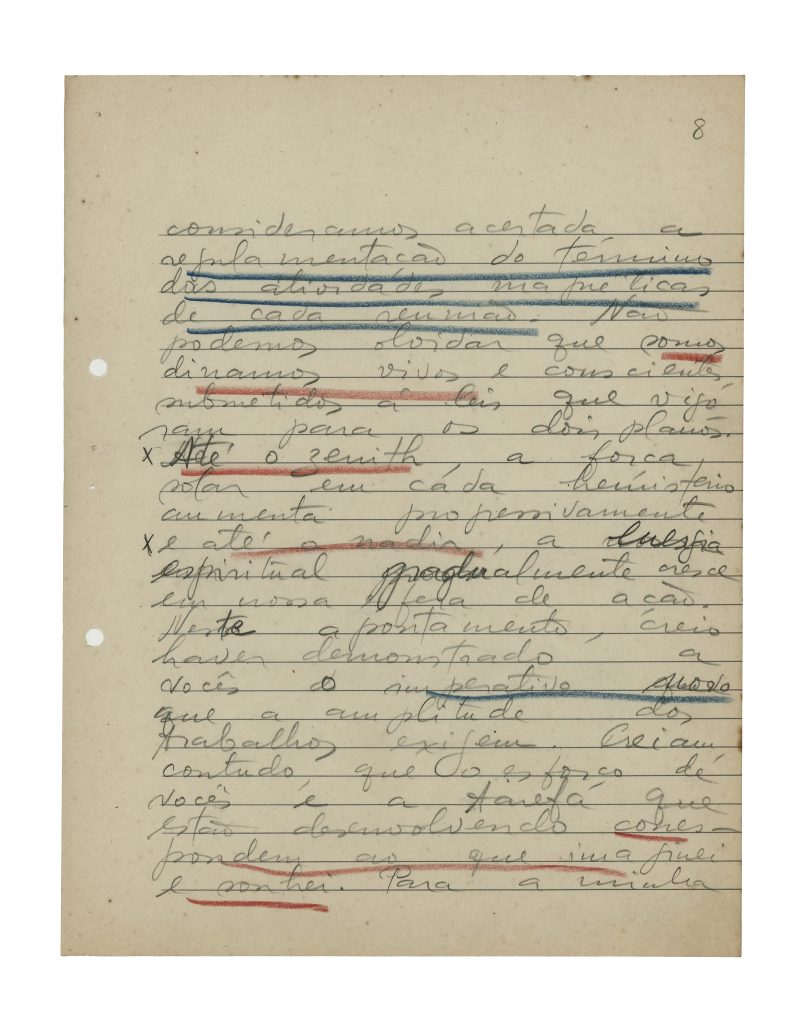 8
consideramos acertada a
regulamentação do término
das atividades magnéticas
de cada reunião. Não
podemos olvidar que somos
dinamos vivos e conscientes,
submetidos á leis que vigó
ram para os dois planos.
x Até o zenith, a força
solar em cáda hemisferio
aumenta progressivamente
x e até o nadir, a energia
espiritual gradualmente cresce
em nossa esfera de acão.
Neste apontamento, creio
haver demonstrado a
vocês o imperativo novo
que a amplitude dos
trabalhos exigem. Creiam,
contudo, que o esforço de
vocês e a tarefa que
estão desenvolvendo corres-
pondem ao que imaginei
e sonhei. Para a minha